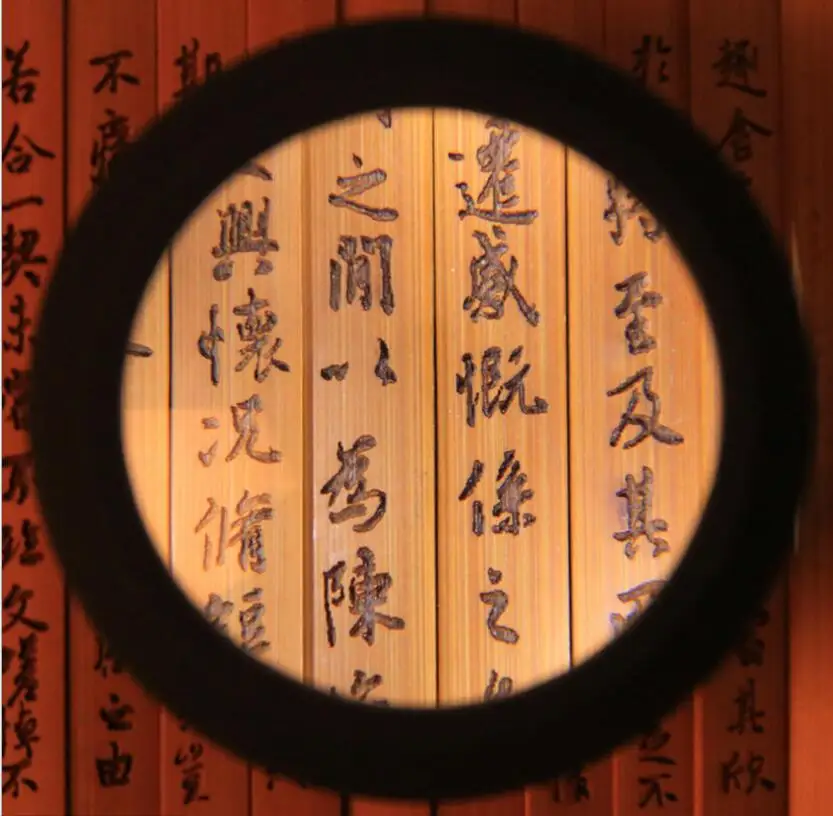 趣舍其欣
於將至及其不
遷感慨係之
之間以為陳
期興懷況脩短豈
不痛之由
若合一契未嘗不臨文嗟悼不